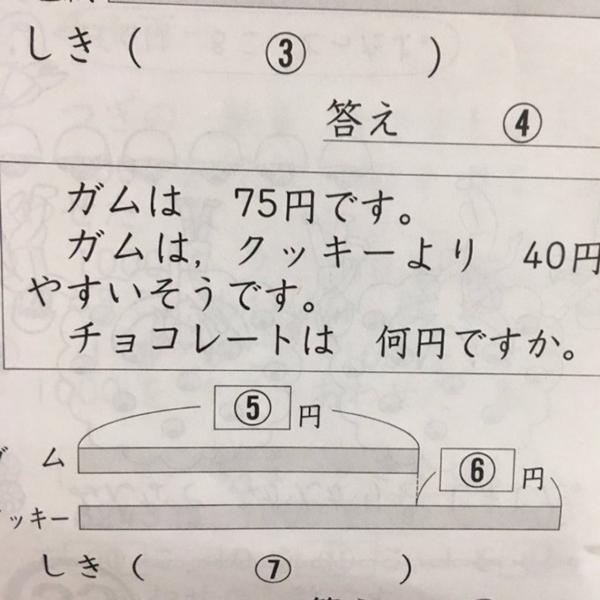 しき( ③ )
答え ④
ガムは 75円です。
ガムは, クッキーより 40円
やすいそうです。
チョコレートは 何円ですか。
⑤ 円
ム
⑥ 円
ッキー
しき( ⑦ )